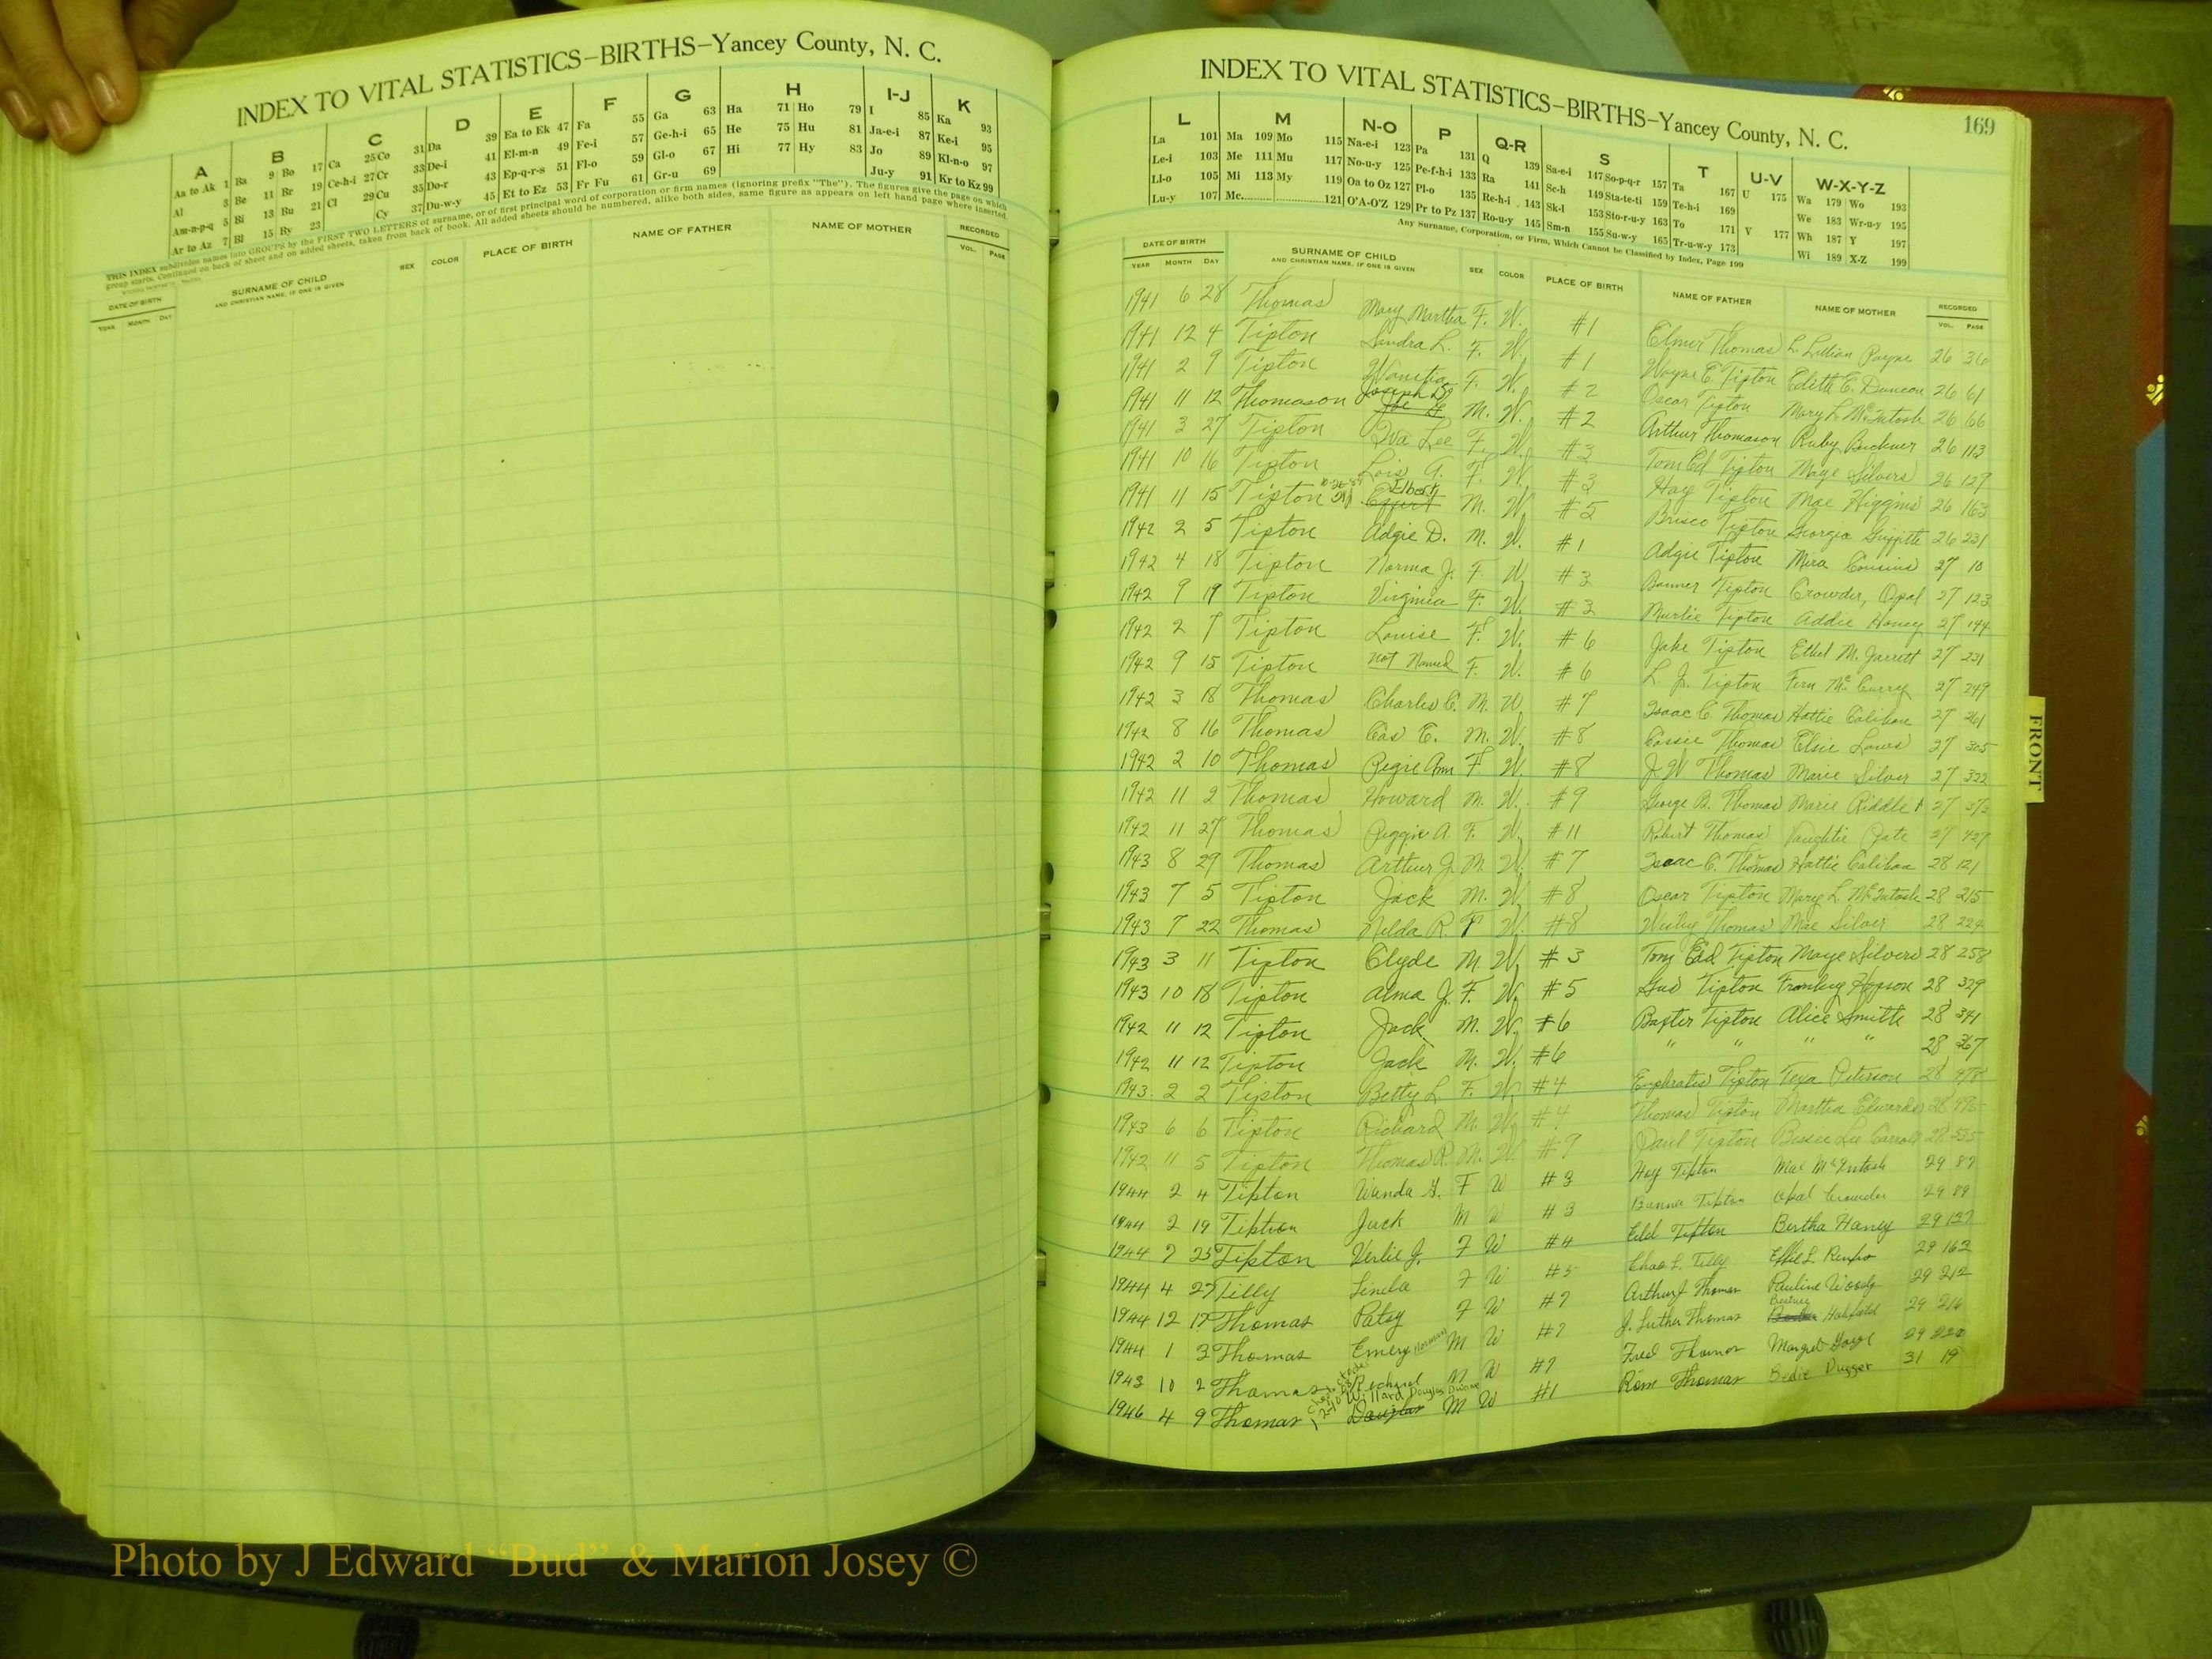 INDEX TO VITAL STATISTICS–BIRTHS–Yancey County, N. C.
A B C D E F G H I-J K
Aa to Ak 1 Ba 9 Bo 17 Ca 25 Co 31 Da 39 Ea to Ek 47 Fa 55 Ga 63 Ha 71 Ho 79 I 85 Ka 93
Al 3 Be 11 Br 19 Ce-h-i 27 Cr 33 De-i 41 El-m-n 49 Fe-i 57 Ge-h-i 65 He 75 Hu 81 Ja-e-i 87 Ke-i 95
Am-n-p-q 5 Bi 13 Bu 21 Cl 29 Cu 35 Do-r 43 Ep-q-r-s 51 Fl-o 59 Gl-o 67 Hi 77 Hy 83 Jo 89 Kl-n-o 97
Ar to Az 7 Bl 15 By 23 Cy 37 Du-w-y 45 Et to Ez 53 Fr Fu 61 Gr-u 69 Ju-y 91 Kr to Kz 99
THIS INDEX subdivides names into GROUPS by the FIRST TWO LETTERS of surname, or of first principal word of corporation or firm names (ignoring prefix "The"). The figures give the page on which
group starts. Continued on back of sheet and on added sheets, taken from back of book. All added sheets should be numbered, alike both sides, same figure as appears on left hand page where inserted.
DATE OF BIRTH SURNAME OF CHILD SEX COLOR PLACE OF BIRTH NAME OF FATHER NAME OF MOTHER RECORDED
YEAR MONTH DAY AND CHRISTIAN NAME, IF ONE IS GIVEN VOL. PAGE
INDEX TO VITAL STATISTICS–BIRTHS–Yancey County, N. C. 169
L M N-O P Q-R S T U-V W-X-Y-Z
La 101 Ma 109 Mo 115 Na-e-i 123 Pa 131 Q 139 Sa-e-i 147 So-p-q-r 157 Ta 167 U 175 Wa 179 Wo 193
Le-i 103 Me 111 Mu 117 No-u-y 125 Pe-f-h-i 133 Ra 141 Sc-h 149 Sta-te-ti 159 Te-h-i 169 We 183 Wr-u-y 195
Ll-o 105 Mi 113 My 119 Oa to Oz 127 Pl-o 135 Re-h-i 143 Sk-l 153 Sto-r-u-y 163 To 171 V 177 Wh 187 Y 197
Lu-y 107 Mc 121 O'A-O'Z 129 Pr to Pz 137 Ro-u-y 145 Sm-n 155 Su-w-y 165 Tr-u-w-y 173 Wi 189 X-Z 199
Any Surname, Corporation, or Firm, Which Cannot be Classified by Index, Page 199
DATE OF BIRTH SURNAME OF CHILD SEX COLOR PLACE OF BIRTH NAME OF FATHER NAME OF MOTHER RECORDED
YEAR MONTH DAY AND CHRISTIAN NAME, IF ONE IS GIVEN VOL. PAGE
1941 6 28 Thomas Mary Martha F. W. #1 Elmer Thomas L. Lillian Payne 26 36
1941 12 4 Tipton Sandra L. F. W. #1 Wayne E. Tipton Edith E. Duncan 26 61
1941 2 9 Tipton Wanetta F. W. #2 Oscar Tipton Mary L. McIntosh 26 66
1941 11 12 Thomason Joseph Joe M. W. #2 Arthur Thomason Ruby Buckner 26 113
1941 3 27 Tipton Iva Lee F. W. #3 Tom Ed Tipton Maye Silvers 26 127
1941 10 16 Tipton Lois F. W. #3 Hoy Tipton Mae Higgins 26 163
1941 11 15 Tipton Elbert M. W. #5 Brisco Tipton Georgia Griffith 26 231
1942 2 5 Tipton Adgie D. M. W. #1 Adgie Tipton Mira Cousins 27 10
1942 4 18 Tipton Norma J. F W. #3 Banner Tipton Crowder, Opal 27 123
1942 9 19 Tipton Virginia F. W. #3 Murlie Tipton Addie Honey 27 144
1942 2 7 Tipton Louise F. W. #6 Jake Tipton Ethel M. Jarrett 27 231
1942 9 15 Tipton Not Named F. W. #6 L. J. Tipton Fern McCurry 27 249
1942 3 18 Thomas Charles C. M. W. #7 Isaac C. Thomas Hattie Calihan 27 261
1942 8 16 Thomas Cas E. M. W. #8 Cassie Thomas Elsie Laws 27 305
1942 2 10 Thomas Pegie Ann F W. #8 J. W. Thomas Marie Silver 27 322
1942 11 2 Thomas Howard M. W. #9 George B. Thomas Marie Riddle 27 373
1942 11 27 Thomas Peggie A. F. W. #11 Robert Thomas Vaughtie Pate 27 427
1943 8 29 Thomas Arthur J. M. W. #7 Isaac C. Thomas Hattie Calihan 28 121
1943 7 5 Tipton Jack M. W. #8 Oscar Tipton Mary L. McIntosh 28 215
1943 7 22 Thomas Nelda R. F W. #8 Thomas Mae Silver 28 224
1943 3 11 Tipton Clyde M. W. #3 Tom Ed Tipton Maye Silvers 28 258
1943 10 18 Tipton Alma J. F. W. #5 Gus Tipton Hopson 28 329
1942 11 12 Tipton Jack M. W. #6 Baxter Tipton Alice Smith 28 341
1942 11 12 Tipton Jack M. W. #6 " " " " 28 367
1943 2 2 Tipton Betty L F. W. #4 Euphratis Tipton Texa Peterson 28 478
1943 6 6 Tipton Richard M. W. #4 Thomas Tipton Martha Edwards 28 495
1942 11 5 Tipton Thomas R. M. W. #9 Paul Tipton Bessie Lee Carroll 28 535
1944 2 4 Tipton Wanda G. F W #3 Hoy Tipton Mae McIntosh 29 87
1944 2 19 Tipton Jack M W #3 Banner Tipton Opal Crowder 29 89
1944 7 25 Tipton Verlie J. F W #4 Edd Tipton Bertha Haney 29 127
1944 4 27 Tilly Linda F W #5 Chas L. Tilly Effie L. Renfro 29 162
1944 12 17 Thomas Patsy F W #7 Arthur J Thomas Pauline Woody 29 212
1944 1 3 Thomas Emery M W #7 J. Luther Thomas 29 216
1943 10 2 Thomas Richard M W #7 Fred Thomas 29 220
1946 4 9 Thomas Willard Douglas M W #1 Rom Thomas Bedie Dugger 31 19
FRONT
Photo by J Edward “Bud” & Marion Josey ©